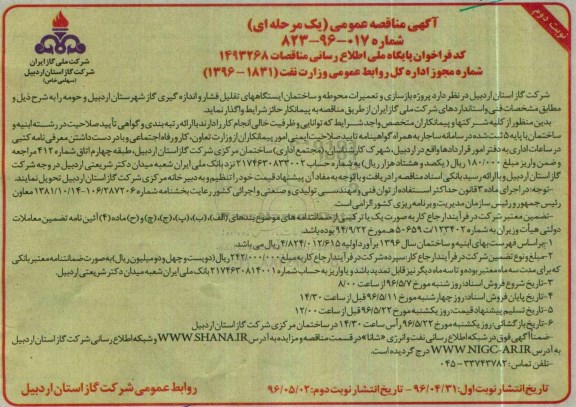 نوبت دوم
آگهی مناقصه عمومی (یک مرحله ای)
شماره ۰۱۷-۹۶-۸۲۳
کد فراخوان پایگاه ملی اطلاع رسانی مناقصات ۱۴۹۳۲۶۸
شماره مجوز اداره کل روابط عمومی وزارت نفت (۱۸۳۱-۱۳۹۶)
شرکت ملی گاز ایران
شرکت گاز استان اردبیل
(سهامی خاص)
شرکت گاز استان اردبیل در نظر دارد پروژه بازسازی و تعمیرات محوطه و ساختمان ایستگاههای تقلیل فشار و اندازه گیری گاز شهرستان اردبیل و حومه را به شرح ذیل و
مطابق مشخصات فنی و استانداردهای شرکت ملی گاز ایران از طریق مناقصه به پیمانکار حائز شرایط واگذار نماید.
بدین منظور از کلیه شرکتها و پیمانکاران متخصص واجد شرایط که توانایی و ظرفیت خالی انجام کار را دارند با ارائه رتبه بندی و گواهی تأیید صلاحیت در رشته ابنیه و
ساختمان با پایه ۵ ثبت شده در سامانه ساجار به همراه گواهینامه تایید صلاحیت ایمنی امور پیمانکاران از وزارت تعاون، کار و رفاه اجتماعی و با در دست داشتن معرفی نامه کتبی
در ساعات اداری به دفتر امور قراردادها واقع در اردبیل، شهرک کارشناسان (مجتمع اداری) ساختمان مرکزی شرکت گاز استان اردبیل، طبقه چهارم اتاق شماره ۴۱۲ مراجعه
و ضمن واریز مبلغ ۱۸۰/۰۰۰ ریال (یکصد و هشتاد هزار ریال) به شماره حساب ۲۱۷۴۶۳۰۸۳۳۰۰۲ نزد بانک ملی ایران شعبه میدان دکتر شریعتی اردبیل در وجه شرکت
گاز استان اردبیل و با ارائه رسید بانکی اسناد مناقصه را دریافت و با توجه به مفاد آن پیشنهاد قیمت خود را تنظیم و به دبیرخانه مرکزی شرکت گاز استان اردبیل تحویل نمایند.
-توجه: در اجرای ماده ۳ قانون حداکثر استفاده از توان فنی و مهندسی تولیدی و صنعتی و اجرائی کشور رعایت بخشنامه شماره ۱۰۶/۲۸۷۲۰۶-۱۲۸۱/۱۰/۱۴ معاون
رئیس جمهور و رئیس سازمان مدیریت و برنامه ریزی کشور الزامی است.
-تضمین معتبر شرکت در فرآیند ارجاع کار به صورت یک یا ترکیبی از ضمانتنامه های موضوع بندهای (الف)، (ب)، (پ)، (ج)، (چ) و (ح) ماده (۴) آئین نامه تضمین معاملات
دولتی هیأت وزیران به شماره ۱۲۳۴۰۲/ت ۵۰۶۵۹ ه مورخ ۹۴/۹/۲۲ بوده باشد.
۱-براساس فهرست بهای ابنیه و ساختمان سال ۱۳۹۶ برآورد اولیه ۴/۸۲۴/۰۱۲/۶۱۵ ریال می باشد.
۲-مبلغ و نوع تضمین شرکت در فرآیند ارجاع کار: سپرده شرکت در فرآیند ارجاع کار به مبلغ ۲۴۲/۰۰۰/۰۰۰ ریال (دویست و چهل و دو میلیون ریال) به صورت ضمانتنامه معتبر بانکی
که برای مدت سه ماه معتبر بوده و تا سه ماه دیگر نیز قابل تمدید باشد و یا واریز به حساب شماره ۲۱۷۴۶۳۰۸۱۴۰۰۱ بانک ملی ایران شعبه میدان دکتر شریعتی اردبیل.
۳-تاریخ شروع فروش اسناد: روز شنبه مورخ ۹۶/۵/۷ از ساعت ۸/۰۰
۴-تاریخ پایان فروش اسناد: روز چهارشنبه مورخ ۹۶/۵/۱۱ تا ساعت ۱۴/۳۰
۵-تاریخ تسلیم پیشنهاد قیمت: روز یکشنبه مورخ ۹۶/۵/۲۲ تا ساعت ۱۲/۰۰
۶-تاریخ بازگشائی: روز یکشنبه مورخ ۹۶/۵/۲۲ رأس ساعت ۱۴/۳۰ در ساختمان مرکزی شرکت گاز استان اردبیل
ضمناً آگهی فوق در شبکه اطلاع رسانی نفت و انرژی «شانا» در قسمت مناقصه و مزایده به آدرس WWW.SHANA.IR و شبکه اطلاع رسانی شرکت گاز استان اردبیل
به آدرس WWW.NIGC-AR.IR درج گردیده است.
-تلفن تماس: ۳۳۷۴۳۷۸۲-۰۴۵
تاریخ انتشار نوبت اول: ۹۶/۰۴/۳۱ - تاریخ انتشار نوبت دوم: ۹۶/۰۵/۰۲
روابط عمومی شرکت گاز استان اردبیل